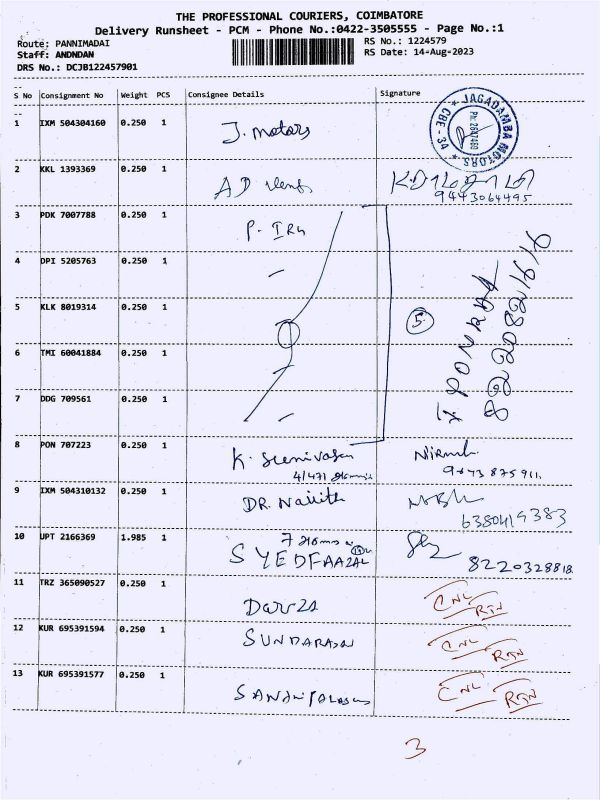 THE PROFESSIONAL COURIERS, COIMBATORE
Delivery Runsheet - PCM - Phone No.:0422-3505555 - Page No.:1
Route: PANNIMADAI
Staff: ANDNDAN
DRS No.: DCJB122457901
RS No.: 1224579
RS Date: 14-Aug-2023
S No Consignment No Weight PCS Consignee Details Signature
1 IXM 504304160 0.250 1 J. Motors
JAGADAMBA MOTORS
CBE - 34
2 KKL 1393369 0.250 1 AD
9443064495
3 PDK 7007788 0.250 1 P.
4 DPI 5205763 0.250 1
5 KLK 8019314 0.250 1 5
6 TMI 60041884 0.250 1
7 DDG 709561 0.250 1
PONRAJ
8220821616
8 PON 707223 0.250 1 K. Seenivasan
4/471
9843 875911
9 IXM 504310132 0.250 1 DR.
6380419383
10 UPT 2166369 1.985 1 SYEDFAAZAL
8220328818
11 TRZ 365090527 0.250 1 CNL RTN
12 KUR 695391594 0.250 1 SUNDARAJAN CNL RTN
13 KUR 695391577 0.250 1 CNL RTN
3